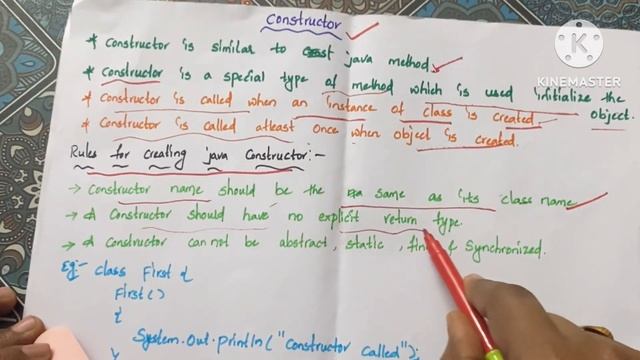 Constructor
KINEMASTER
* Constructor is similar to java method
* Constructor is a special type of method which is used initialize the object.
* Constructor is called when an instance of class is created
* Constructor is called atleast once when object is created.
Rules for creating java Constructor:-
→ Constructor name should be the same as its class name
→ A Constructor should have no explicit return type.
→ A Constructor can not be abstract, static, final & Synchronized.
Eg:- class First {
First()
{
System.out.println("Constructor called");
}